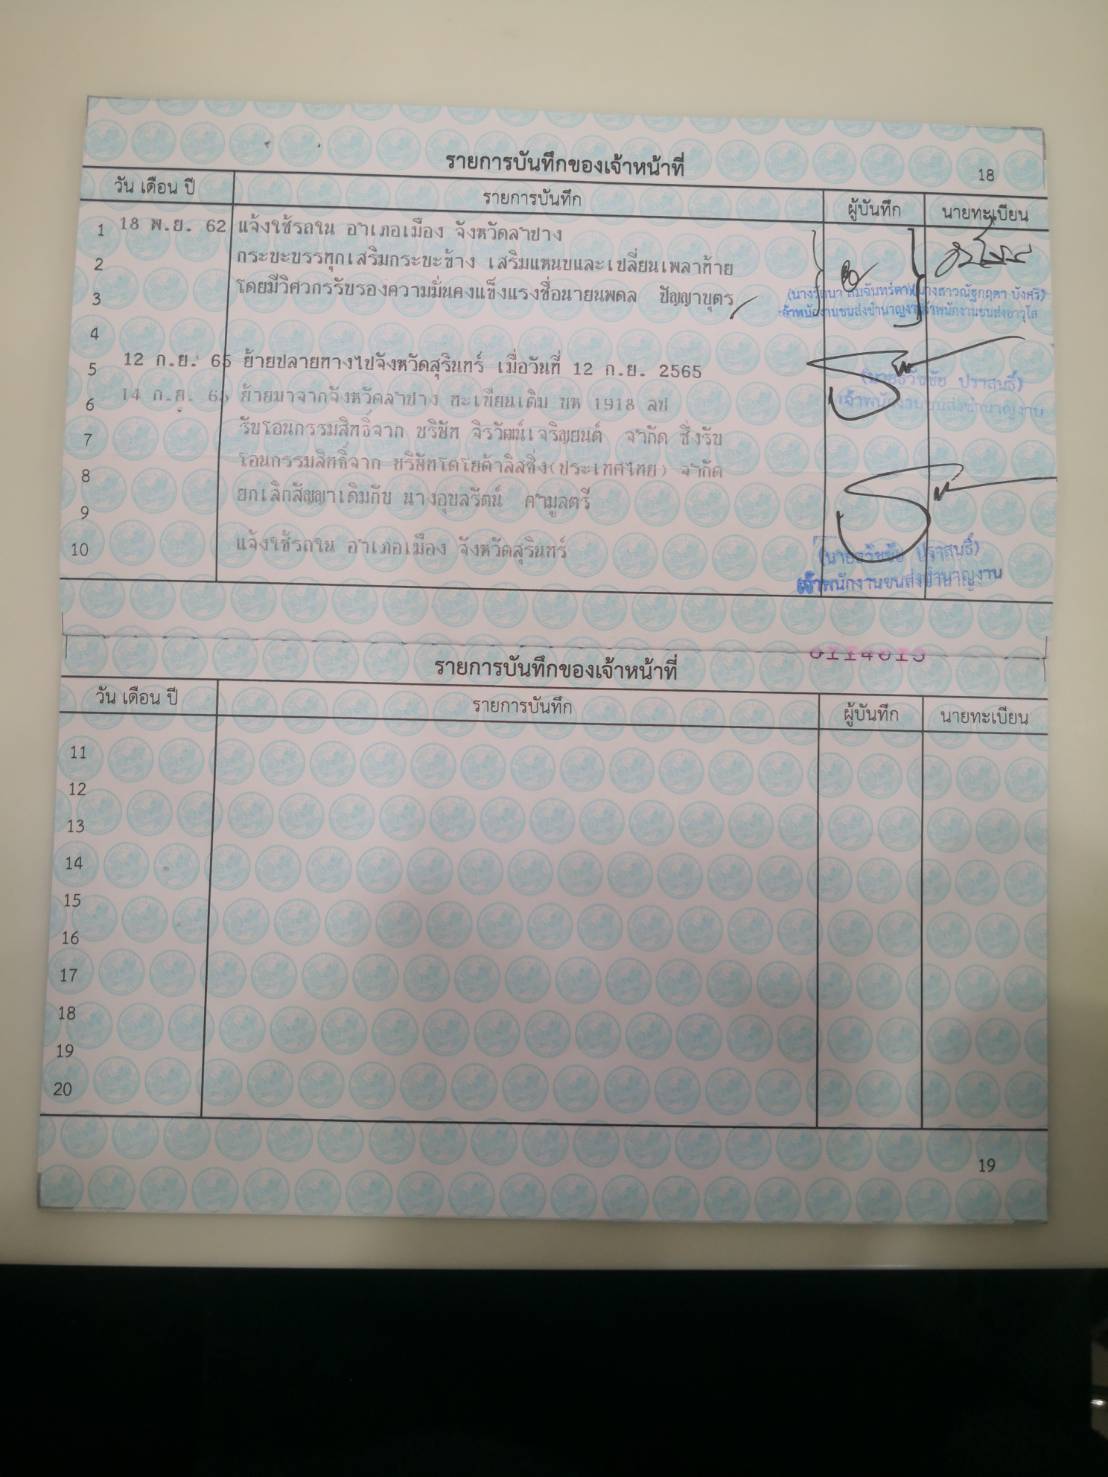 รายการบันทึกของเจ้าหน้าที่
18
วัน เดือน ปี รายการบันทึก ผู้บันทึก นายทะเบียน
1 18 พ.ย. 62 แจ้งใช้รถใน อำเภอเมือง จังหวัดลำปาง
2 กระบะบรรทุกเสริมกระบะข้าง เสริมแหนบและเปลี่ยนเพลาท้าย
3 โดยมีวิศวกรรับรองความมั่นคงแข็งแรงชื่อนายนพดล ปัญญาบุตร
4
5 12 ก.ย. 65 ย้ายปลายทางไปจังหวัดสุรินทร์ เมื่อวันที่ 12 ก.ย. 2565
(นายธวัชชัย ปราสุนธิ์)
6 14 ก.ย. 65 ย้ายมาจากจังหวัดลำปาง ทะเบียนเดิม บห 1918 ลป
เจ้าพนักงานขนส่งชำนาญงาน
7 รับโอนกรรมสิทธิ์จาก บริษัท จิรวัฒน์เจริญยนต์ จำกัด ซึ่งรับ
8 โอนกรรมสิทธิ์จาก บริษัทโตโยต้าลิสซิ่ง(ประเทศไทย) จำกัด
9 ยกเลิกสัญญาเดิมกับ นางอุบลรัตน์ คำมูลตรี
10 แจ้งใช้รถใน อำเภอเมือง จังหวัดสุรินทร์
เจ้าพนักงานขนส่งชำนาญงาน
รายการบันทึกของเจ้าหน้าที่
วัน เดือน ปี รายการบันทึก ผู้บันทึก นายทะเบียน
11
12
13
14
15
16
17
18
19
20
19